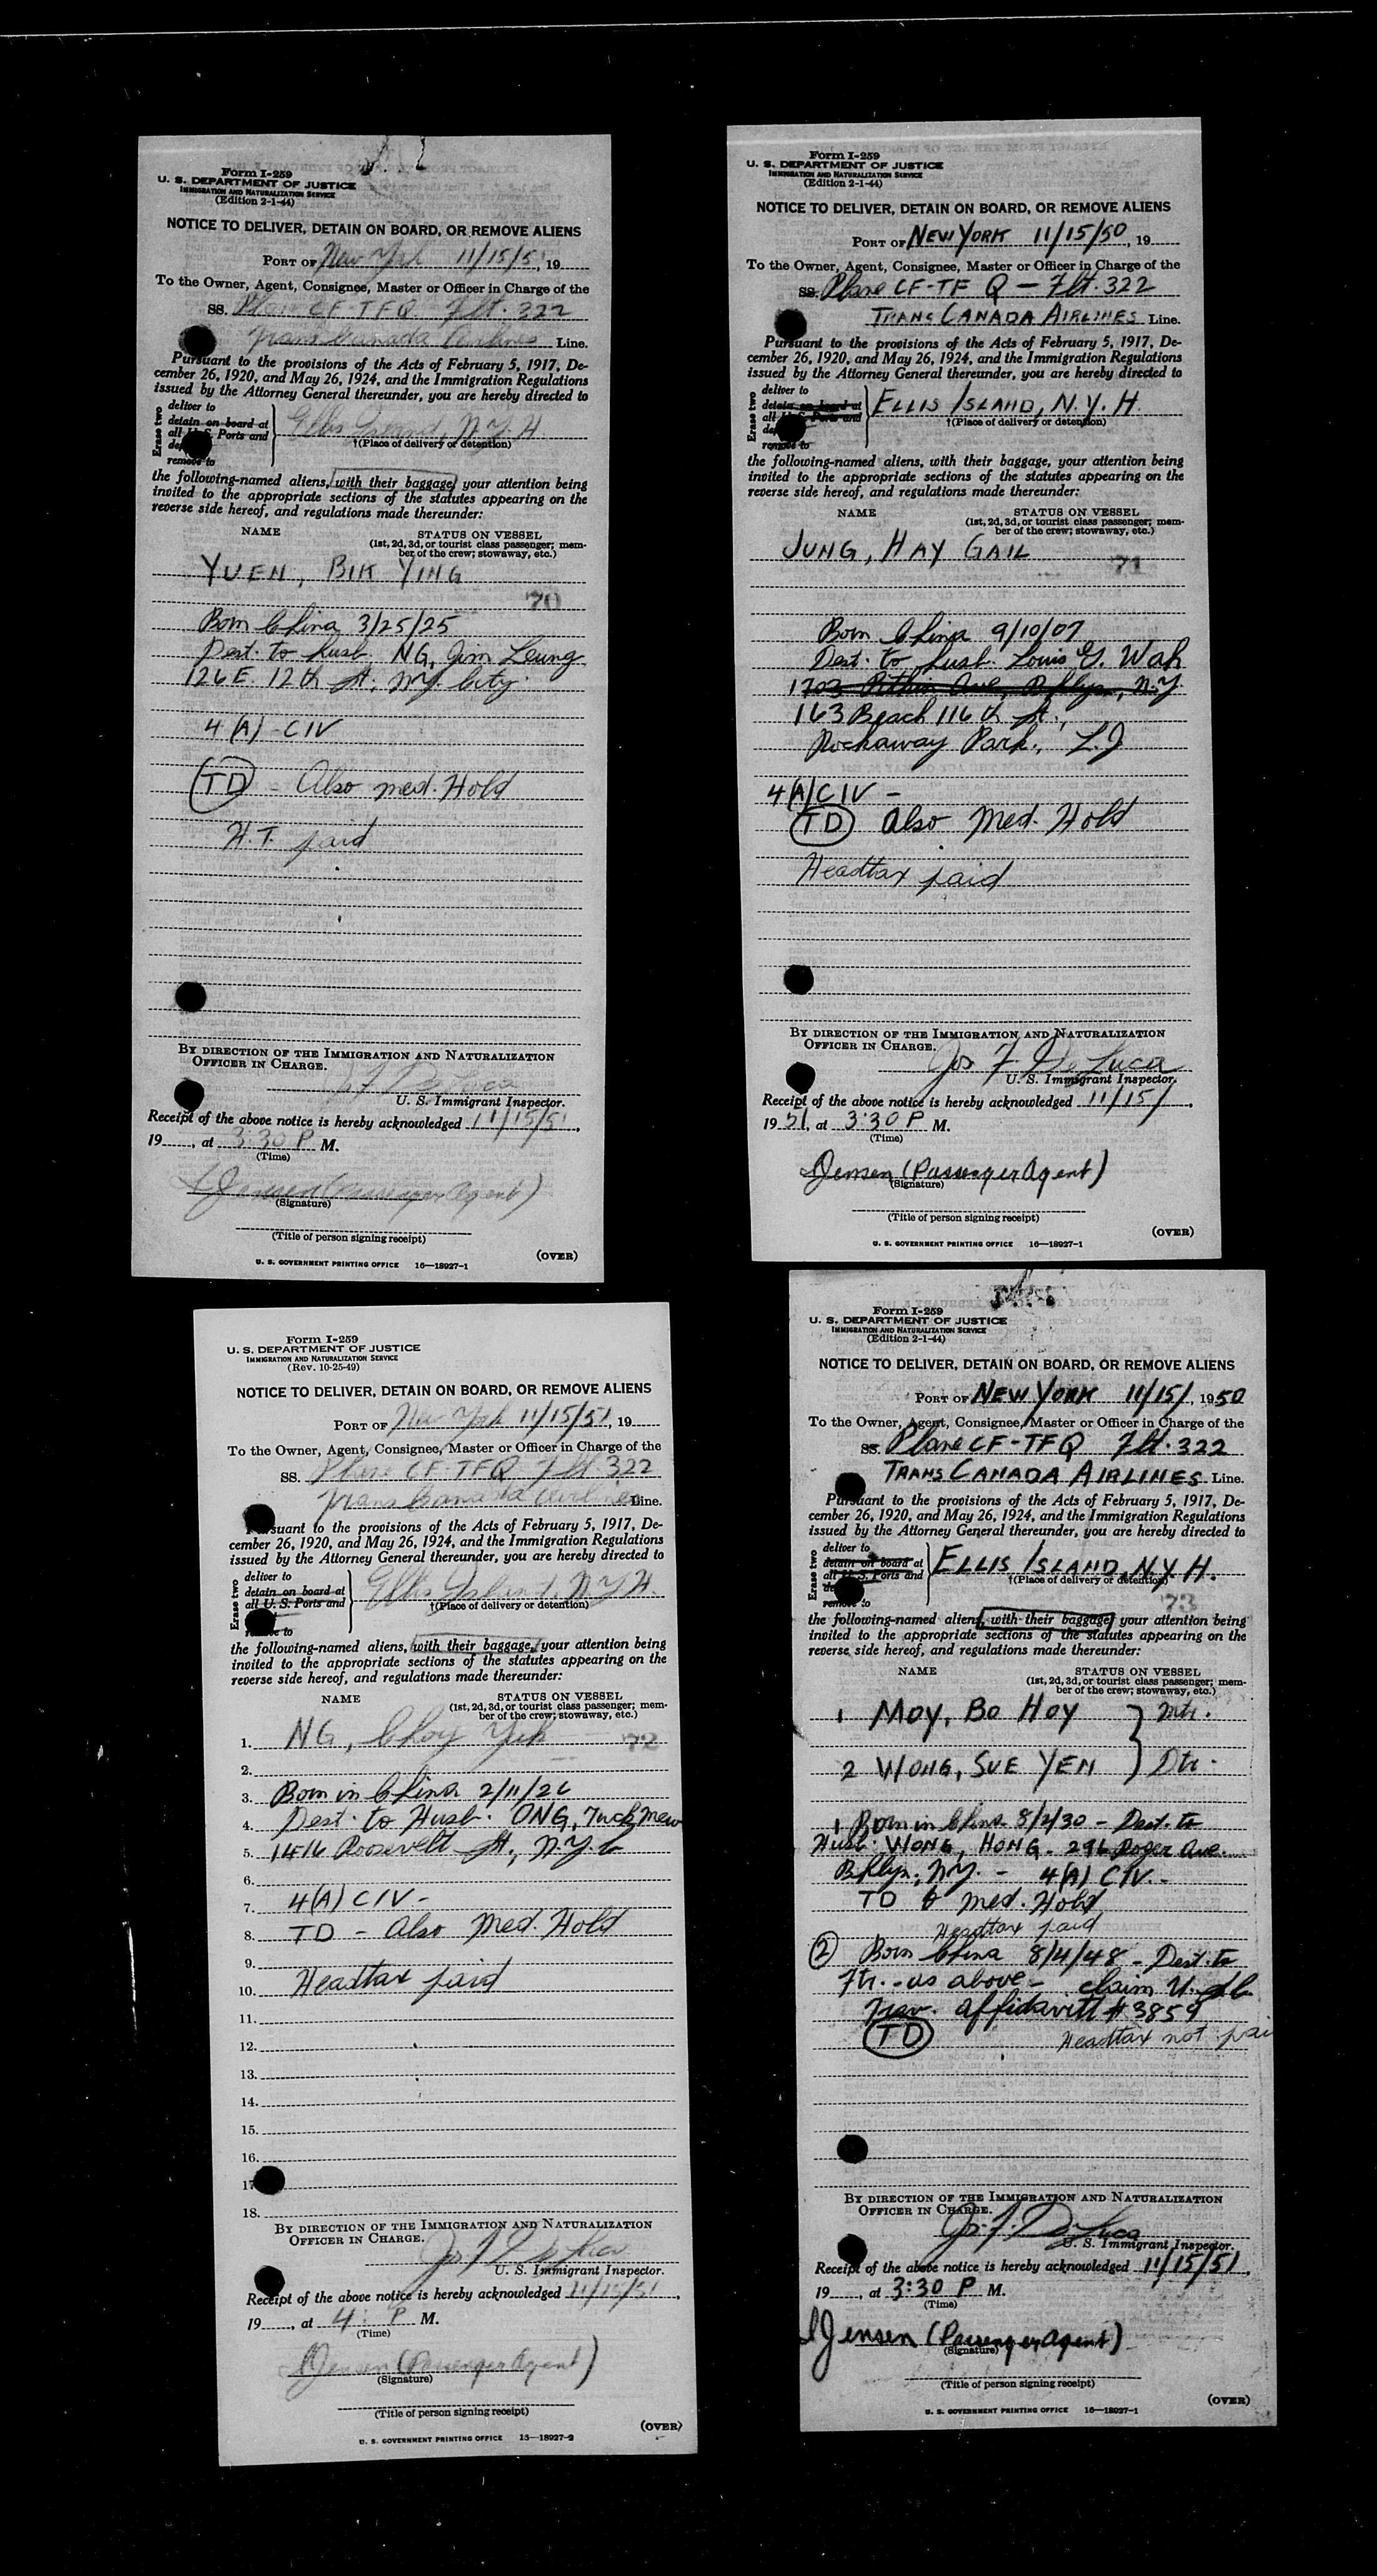 Form I-259
U. S. DEPARTMENT OF JUSTICE
IMMIGRATION AND NATURALIZATION SERVICE
(Edition 2-1-44)
NOTICE TO DELIVER, DETAIN ON BOARD, OR REMOVE ALIENS
PORT OF New York 11/15/51, 19
To the Owner, Agent, Consignee, Master or Officer in Charge of the
SS. Plane CF-TFQ Flt. 322
Trans Canada Airlines Line.
Pursuant to the provisions of the Acts of February 5, 1917, De-
cember 26, 1920, and May 26, 1924, and the Immigration Regulations
issued by the Attorney General thereunder, you are hereby directed to
Erase two
deliver to
detain on board at
all U. S. Ports and
remove to
Ellis Island, N.Y.H
†(Place of delivery or detention)
the following-named aliens, with their baggage, your attention being
invited to the appropriate sections of the statutes appearing on the
reverse side hereof, and regulations made thereunder:
NAME STATUS ON VESSEL
(1st, 2d, 3d, or tourist class passenger; mem-
ber of the crew; stowaway, etc.)
YUEN, BIK YING
70
Born China 3/25/25
Dest. to husb. NG, Jim Leung
126 E. 12th St., N.Y. City.
4(A) - CIV
TD - Also med. Hold
H.T. paid
BY DIRECTION OF THE IMMIGRATION AND NATURALIZATION
OFFICER IN CHARGE.
J F DeLuca
U. S. Immigrant Inspector.
Receipt of the above notice is hereby acknowledged 11/15/51,
19 , at 3:30 P M.
(Time)
Jensen (Passenger Agent)
(Signature)
(Title of person signing receipt)
(OVER)
U. S. GOVERNMENT PRINTING OFFICE 16—18927-1
Form I-259
U. S. DEPARTMENT OF JUSTICE
IMMIGRATION AND NATURALIZATION SERVICE
(Edition 2-1-44)
NOTICE TO DELIVER, DETAIN ON BOARD, OR REMOVE ALIENS
PORT OF NEW YORK 11/15/50, 19
To the Owner, Agent, Consignee, Master or Officer in Charge of the
SS. Plane CF-TF Q - Flt. 322
TRANS CANADA AIRLINES Line.
Pursuant to the provisions of the Acts of February 5, 1917, De-
cember 26, 1920, and May 26, 1924, and the Immigration Regulations
issued by the Attorney General thereunder, you are hereby directed to
Erase two
deliver to
detain on board at
all U. S. Ports and
remove to
ELLIS ISLAND, N.Y.H
†(Place of delivery or detention)
the following-named aliens, with their baggage, your attention being
invited to the appropriate sections of the statutes appearing on the
reverse side hereof, and regulations made thereunder:
NAME STATUS ON VESSEL
(1st, 2d, 3d, or tourist class passenger; mem-
ber of the crew; stowaway, etc.)
JUNG, HAY GAIL
71
Born China 9/10/07
Dest. to husb. Louis G. Wah
1703 Pitkin Ave, Bklyn, N.Y.
163 Beach 116th St.,
Rockaway Park, L.I.
4(A) CIV -
TD Also Med. Hold
Headtax paid
BY DIRECTION OF THE IMMIGRATION AND NATURALIZATION
OFFICER IN CHARGE.
Jos F DeLuca
U. S. Immigrant Inspector.
Receipt of the above notice is hereby acknowledged 11/15/,
19 51, at 3:30 P M.
(Time)
Jensen (Passenger Agent)
(Signature)
(Title of person signing receipt)
(OVER)
U. S. GOVERNMENT PRINTING OFFICE 16—18927-1
Form I-259
U. S. DEPARTMENT OF JUSTICE
IMMIGRATION AND NATURALIZATION SERVICE
(Rev. 10-25-49)
NOTICE TO DELIVER, DETAIN ON BOARD, OR REMOVE ALIENS
PORT OF New York 11/15/51, 19
To the Owner, Agent, Consignee, Master or Officer in Charge of the
SS. Plane CF-TFQ Flt. 322
Trans Canada Airlines Line.
Pursuant to the provisions of the Acts of February 5, 1917, De-
cember 26, 1920, and May 26, 1924, and the Immigration Regulations
issued by the Attorney General thereunder, you are hereby directed to
Erase two
deliver to
detain on board at
all U. S. Ports and
remove to
Ellis Island, N.Y.H.
†(Place of delivery or detention)
the following-named aliens, with their baggage, your attention being
invited to the appropriate sections of the statutes appearing on the
reverse side hereof, and regulations made thereunder:
NAME STATUS ON VESSEL
(1st, 2d, 3d, or tourist class passenger; mem-
ber of the crew; stowaway, etc.)
1. NG, Choy Yuk 72
2.
3. Born in China 2/11/26
4. Dest. to Husb. ONG, Tuck Mew
5. 14-16 Roosevelt St., N.Y.C
6.
7. 4(A) CIV -
8. TD - Also Med. Hold
9.
10. Headtax paid
11.
12.
13.
14.
15.
16.
17.
18.
BY DIRECTION OF THE IMMIGRATION AND NATURALIZATION
OFFICER IN CHARGE.
Jos F DeLuca
U. S. Immigrant Inspector.
Receipt of the above notice is hereby acknowledged 11/15/51,
19 , at 4: P M.
(Time)
Jensen (Passenger Agent)
(Signature)
(Title of person signing receipt)
(OVER)
U. S. GOVERNMENT PRINTING OFFICE 15—18927-2
Form I-259
U. S. DEPARTMENT OF JUSTICE
IMMIGRATION AND NATURALIZATION SERVICE
(Edition 2-1-44)
NOTICE TO DELIVER, DETAIN ON BOARD, OR REMOVE ALIENS
PORT OF NEW YORK 11/15/, 1950
To the Owner, Agent, Consignee, Master or Officer in Charge of the
SS. Plane CF-TFQ Flt. 322
TRANS CANADA AIRLINES Line.
Pursuant to the provisions of the Acts of February 5, 1917, De-
cember 26, 1920, and May 26, 1924, and the Immigration Regulations
issued by the Attorney General thereunder, you are hereby directed to
Erase two
deliver to
detain on board at
all U. S. Ports and
remove to
ELLIS ISLAND, N.Y.H.
†(Place of delivery or detention)
73
the following-named aliens, with their baggage, your attention being
invited to the appropriate sections of the statutes appearing on the
reverse side hereof, and regulations made thereunder:
NAME STATUS ON VESSEL
(1st, 2d, 3d, or tourist class passenger; mem-
ber of the crew; stowaway, etc.)
1 MOY, BO HOY } Mtr.
2 WONG, SUE YEN } Dtr.
1 Born in China 8/2/30 - Dest. to
Husb. WONG, HONG. 296 Roger Ave.
Bklyn, N.Y. - 4(A) CIV.
TD & Med. Hold
Headtax paid
2 Born China 8/4/48 - Dest. to
Ftr. - as above - claim U.S.C.
Trav. affidavitt #3859
TD Headtax not pai
BY DIRECTION OF THE IMMIGRATION AND NATURALIZATION
OFFICER IN CHARGE.
Jos. F. DeLuca
U. S. Immigrant Inspector.
Receipt of the above notice is hereby acknowledged 11/15/51,
19 , at 3:30 P M.
(Time)
Jensen (Passenger Agent)
(Signature)
(Title of person signing receipt)
(OVER)
U. S. GOVERNMENT PRINTING OFFICE 16—18927-1